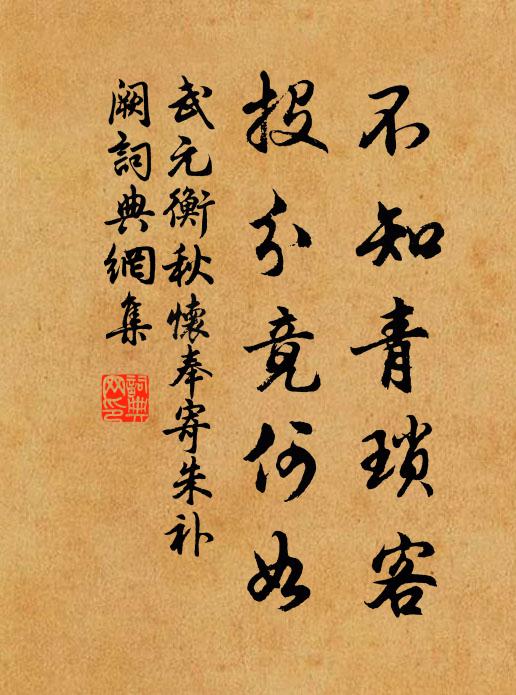 不知青瑣客
投分竟何如
武元衡秋懷奉寄朱补
闕詞典網集
詞典網印